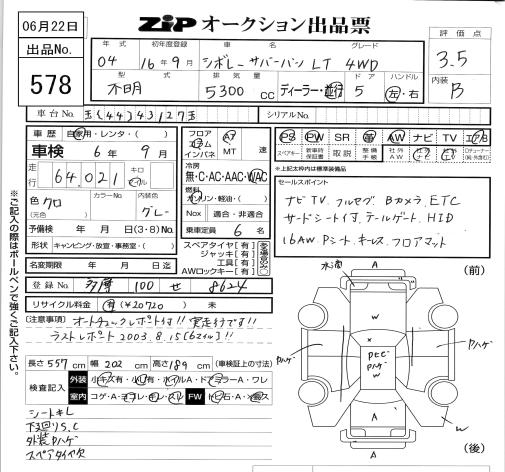 06月22日
ZiP オークション出品票
出品No.
578
年式
初年度登録
車名
グレード
04
16年9月
シボレー サバーバン LT 4WD
型式
排気量
ドア
ハンドル
不明
5300 CC
ディーラー・並行
5
左・右
評価点
3.5
内装
B
車台No.
シリアルNo.
車歴
自家用・レンタ・( )
車検
6年9月
走行
64,021
キロ
マイル
色
クロ
(元色)
カラーNo.
内装色
グレー
予備検
月 日迄(3・8)No.
形状
キャンピング・放宣・事務室・( )
名変期限
年 月 日迄
登録No.
100
せ
8624
リサイクル料金
有(¥20720)
未
フロア
コラム
インパネ
A7
MT
速
冷房
無・C・AC・AAC・WAC
燃料
ガソリン・軽油・( )
Nox
適合・非適合
乗車定員
6
名
スペアタイヤ[有]
ジャッキ[有]
工具[有]
AWロックキー[有]
PS
PW
SR
革
AW
ナビ
TV
エアB
スペアキー
新車時保証書
取説
整備手帳
社外AW
社外ナビ
社外TV
※上記太枠内は標準装備品
セールスポイント
ナビ TV フルセグ Bカメラ ETC
サードシート付 テールゲート HID
16AW Pシート キーレス フロアマット
【注意事項】
オートチェックレポート付!! 実走行です!!
ラストレポート 2003.8.15[6マイル]!!
長さ 557 cm
幅 202 cm
高さ 189 cm
(車検証上の寸法)
検査記入
外装
小キズ有・小凹有・ホイルA・ドアミラーA・ワレ
室内
コゲ・A・ヨゴレ・キレ・スレ
FW
トビ石・A・X
シートキレ
下廻りS.C
外装ウスハゲ
スペアタイヤ欠
※ご記入の際はボールペンで強くご記入下さい。
(前)
(後)
A
A
W
W
A
w